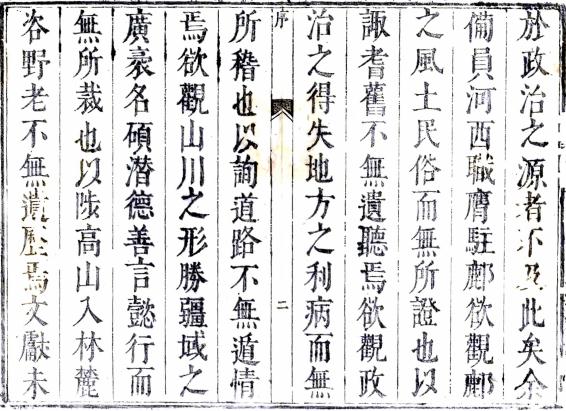 於政治之源者不及此矣余
備員河西職膺駐鄜欲觀鄜
之風土民俗而無所證也以
諏耆舊不無遺聽焉欲觀政
治之得失地方之利病而無
序
二
所稽也以詢道路不無遁情
焉欲觀山川之形勝疆域之
廣豪名碩潛德善言懿行而
無所裁也以陟高山入林麓
咨野老不無遺歷焉文獻未